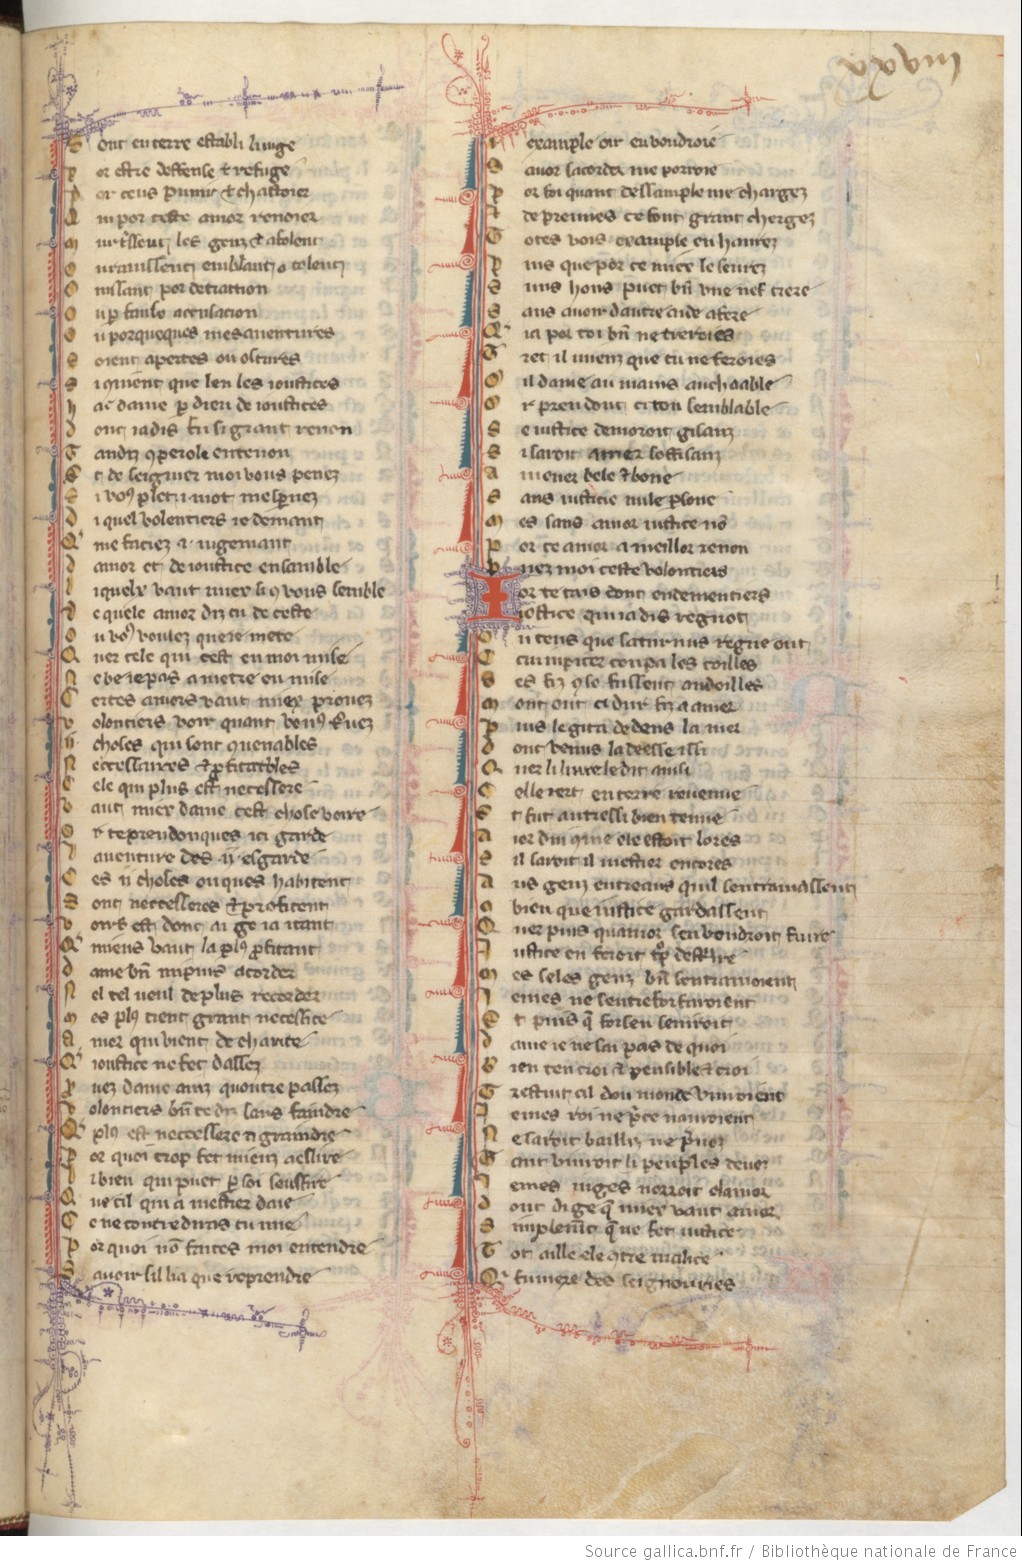 xxviii
Sont en terre establi li iuge
Por estre deffense et refuge
Por ceus punir et chastoier
Qui por ceste amor renoier
Murtrissent les genz et afolent
Ou ravissent emblant ou tolent
O nuisant por detraction
Ou par fausse acusacion
Ou por queques mesaventures
Soient apertes ou oscures
Si convient que len les ioustices
Ha dame por dieu de ioustices
Dont iadis fu si grant renon
Tandis com parole en tenon
Et de seignier moi vous penez
Si vous plet .i. mot maprenez
Di quel volentiers ie demant
Que me faciez .i. iugemant
Damor et de ioustice ensamble
Liquelx vaut miex si com vous semble
De quele amor diz tu de ceste
Ou vous voulez que ie mete
Quer cele qui cest en moi mise
Ne bee ie pas a metre en mise
Certes amors vaut miex prouez
Volontiers voir quant vous trouvez
.ii. choses qui sont convenables
Necessaires et profitables
Cele qui plus est necessere
Vaut miex dame cest chose voire
Or te pren donques ici garde
La aventure des .ii. esgarde
Ces .ii. choses ou ques habitent
Sont neccesseres et profitent
Voirs est dont ai ge ia itant
Que miens vaut la plus profitant
Dame bien mi puis acorder
Nel tel veul de plus recorder
Mes plus tient grant necessite
Amor qui vient de charite
Que ioustice ne fet dassez
Prouvez dame ainz quoutre passez
Volontiers bien te di sans faindre
Que plus est neccessere et graindre
Por quoi trop fet miex a eslire
Li bien qui puet par soi souffire
Que cil qui a mestier daie
Ce ne contrediras tu mie
Por quoi non faites moi entendre
Savoir sil i a que reprendre
.i. example oir en voudroie
Savoir sacorder me porroie
Par foi quant dessample me chargez
Et de preuves ce sont grant chergez
Toutes vois example en havrez
Puis que por ce miex le savrez
Sunshons puet bien une nef trere
Sans avoir dautre aide afere
Que ia por toi bien ne treroies
Tret il miex que tu ne feroies
Oil dame au mains au chaable
Or pren dont ci ton semblable
Se iustice demoroit gisanz
Si seroit amer soffisanz
A mener bele et bone
Sans iusticie nule persone
Mes sans amor iustice non
Por ce amor a meillor renon
Prouvez moi ceste volontiers
Or te tais dont endementiers
Ioustice qui iadis regnot
Ou tens que saturnus regne out
Cui iupiter coupa les coilles
Ses filz com se fussent andoilles
Mout out ci dur filz a amer
Puis le gita dedens la mer
Dont venus la deesse issi
Quer li livre le dit ausi
Selle rert en terre revenue
Et fut autressi bien tenue
Au ior dui com ele estoit lores
Sil saroit il mestier encores
Aus genz entreaus quil sentramassent
Combien que iustice gardassent
Quer puis quamor seu voudroit fuire
Iustice en feroit trop destruire
Mes se les genz bien sentramoient
Iemes ne sentreforfaroient
Et puis que forfeu seniroit
Dame ie ne sai pas de quoi
Bien ten croi et pensible et croi
Trestuit cil dou monde vivroient
Iemes roi ne prince nauroient
Ne saroit baillif ne prevost
Tant vivroit li peuples devost
Iemes iuges norroit clamor
Dont di ge que miex vaut amor
Simplement que ne fet iustice
Tot aille ele contre malice
Qui fu mere des seignouries
Source gallica.bnf.fr / Bibliothèque nationale de France